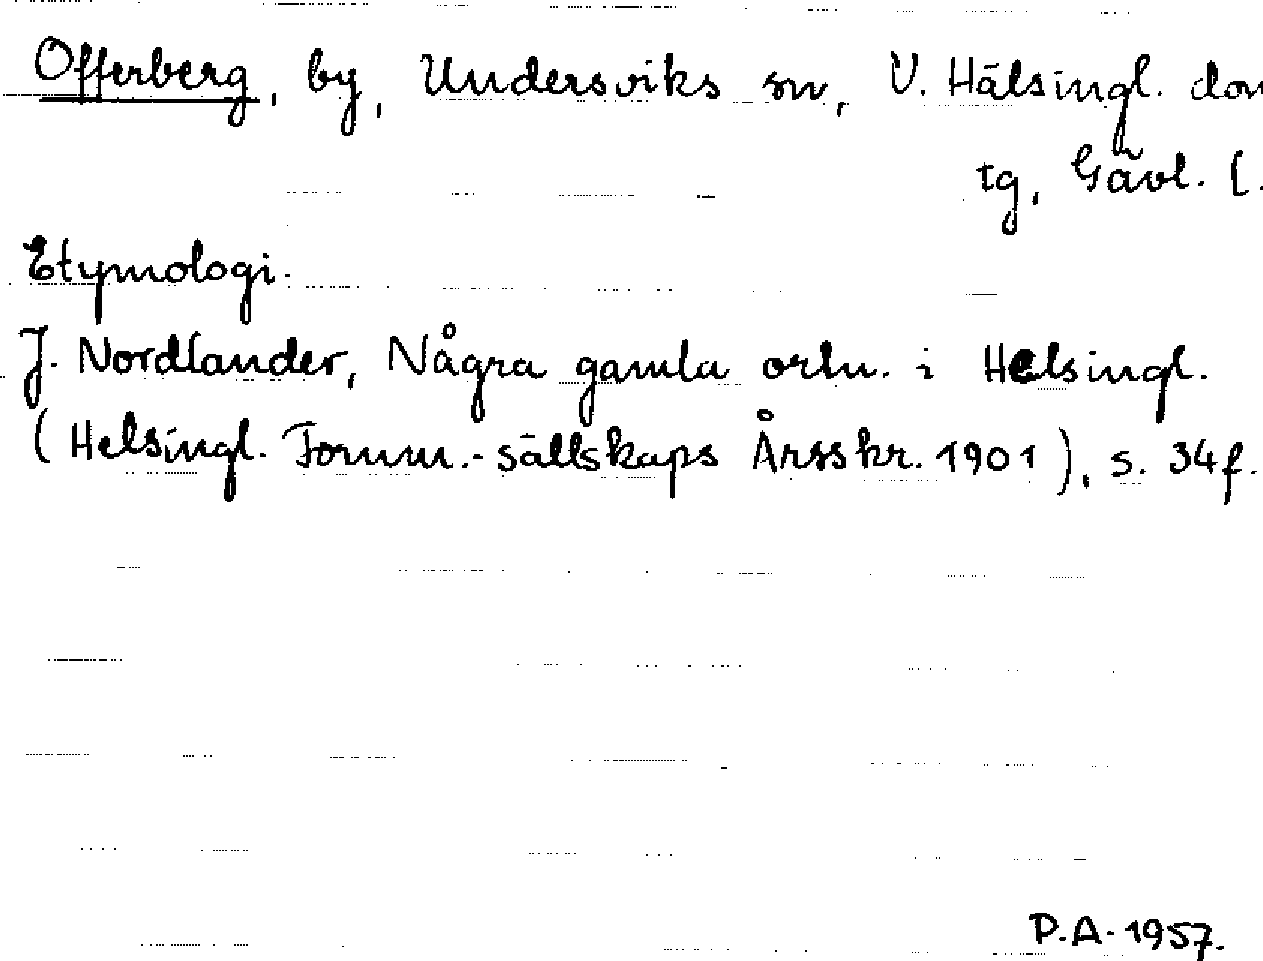 Offerberg, by, Undersviks sn, V. Hälsingl. dom
tg, Gävl. l.
Etymologi.
J. Nordlander, Några gamla ortn. i Helsingl.
(Helsingl. Fornm.-sällskaps Årsskr. 1901), s. 34f.
P.A. 1957.